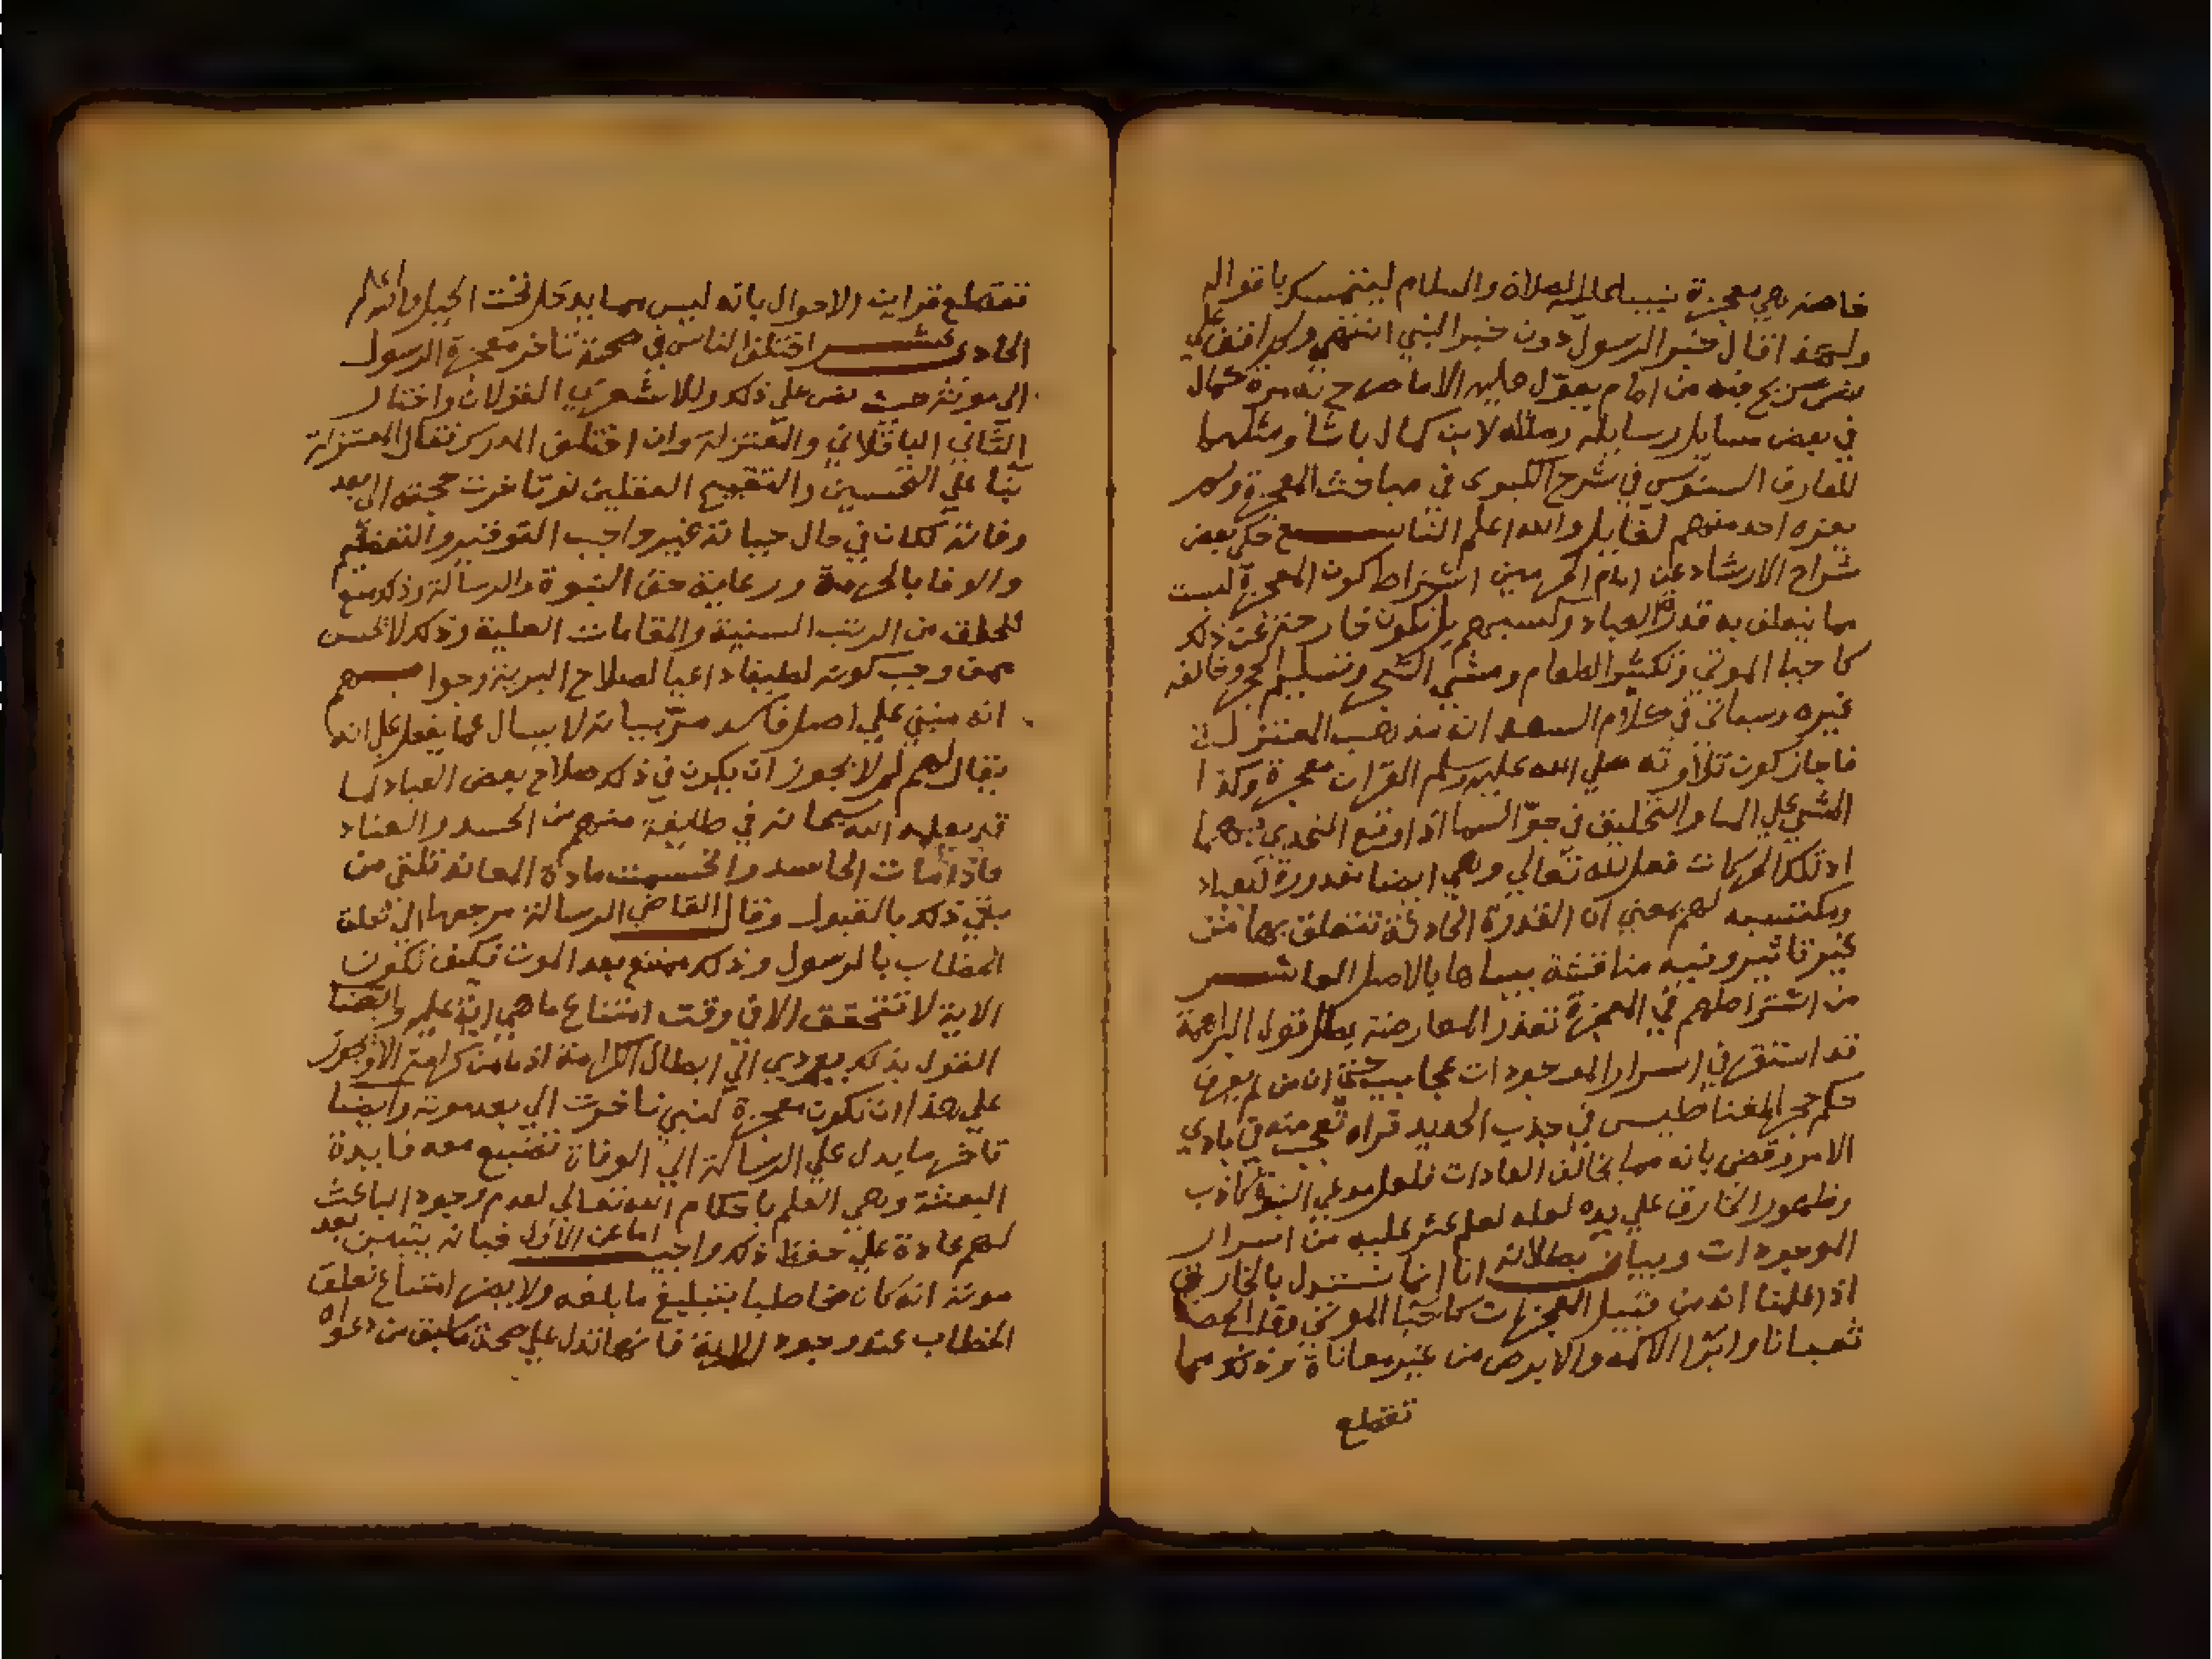 خاصة وهي معجزة نبينا عليه الصلاة والسلام ليتمسكر باقواله
ولهذا قال خبر الرسول دون خبر النبي انتهي ولم اقف علي
في بعض مسايل رسايله رسالة لابن كمال باشا ومثلهما
للعارف السنوسي في شرح الكبرى في مباحث المعجزة ولم
يعزه احد منهم لقايل والله اعلم التاسع حكي بعض
شراح الارشاد عن امام الحرمين اشتراط كون المعجزة ليست
مما يتعلق به قدرة العباد وكسبهم بل تكون خارجة عن ذلك
كاحيا الموتي وتكثير الطعام ومشي الشجر وتسليم الحجر وخالفه
غيره وسياتي في كلام السعد ان مذهب المعتزلة
فاجاز كون تلاوته صلي الله عليه وسلم القران معجزة وكذا
المشي علي الما والتحليق في جو السما اذا وقع التحدي بهما
اذ تلك الحركات فعل لله تعالي وهي ايضا مقدورة للعباد
ومكتسبه لهم بمعني ان القدرة الحادثة تتعلق بها من
غير تاثير وفيه مناقشة بيناها بالاصل العاشر
من اشتراطهم في المعجزة تعذر المعارضة بطل قول البراهمة
قد استقر في اسرار الموجودات عجايب حتي ان من لم يعرف
حكم حجر المغناطيس في جذب الحديد تراه تعجب منه في بادي
الامر وقضي بانه مما يخالف العادات فلعل مدعي النبوة كاذب
وظهور الخارق علي يده لعله لعلم عثر عليه من اسرار
الموجودات وبيان بطلانه انا انما نستدل بالخارق
اذا علمنا انه من قبيل المعجزات كاحيا الموتي وقلب العصا
ثعبانا وابرا الاكمه والابرص من غير معاناة وذلك مما
تقطع
تقطع قراين الاحوال بانه ليس مما يدخل تحت الحيل والله اعلم
الحادي عشر اختلف الناس في صحة تاخر معجزة الرسول
الي موته حيث نص علي ذلك وللاشعري القولان واختار
الثاني الباقلاني والمعتزلة وان اختلف المدرك فقال المعتزلة
بنا علي التحسين والتقبيح العقلين لو تاخرت حجته الي بعد
وفاته لكان في حال حياته غير واجب التوقير والتعظيم
والوفا بالحرمة ورعاية حق النبوة والرسالة وذلك منع
للخلق من الرتب السنية والمقامات العلية وذلك لا يحسن
ممن وجب كونه لطيفا داعيا لصلاح البرية وجوابهم
انه مبني علي اصل فاسد مر بيانه لا يسال عما يفعل علي انه
يقال لهم لم لا يجوز ان يكون في ذلك صلاح بعض العباد لما
قد يعلمه الله سبحانه في طايفة منهم من الحسد والعناد
فاذا مات الحاسد وانحسمت مادة المعاند تلقي من
بقي ذلك بالقبول وقال القاضي الرسالة مرجعها الي تعلق
الخطاب بالرسول وذلك ممتنع بعد الموت فكيف تكون
الاية لا تتحقق الا في وقت امتناع ما هي اية عليه وايضا
القول بذلك يودي الي ابطال الكرامة اذ ما من كرامة الا ويجوز
علي هذا ان تكون معجزة لنبي تاخرت الي بعد موته وايضا
تاخر ما يدل علي الرسالة الي الوفاة تضيع معه فايدة
البعثة وهي العلم باحكام الله تعالي لعدم وجود الباعث
لهم عادة علي حفظ ذلك واجيب اما عن الاول فبانه يتبين بعد
موته انه كان مخاطبا بتبليغ ما بلغه ولا يضر امتناع تعلق
الخطاب عند وجود الاية فانها تدل علي صحة ما سبق من دعواه